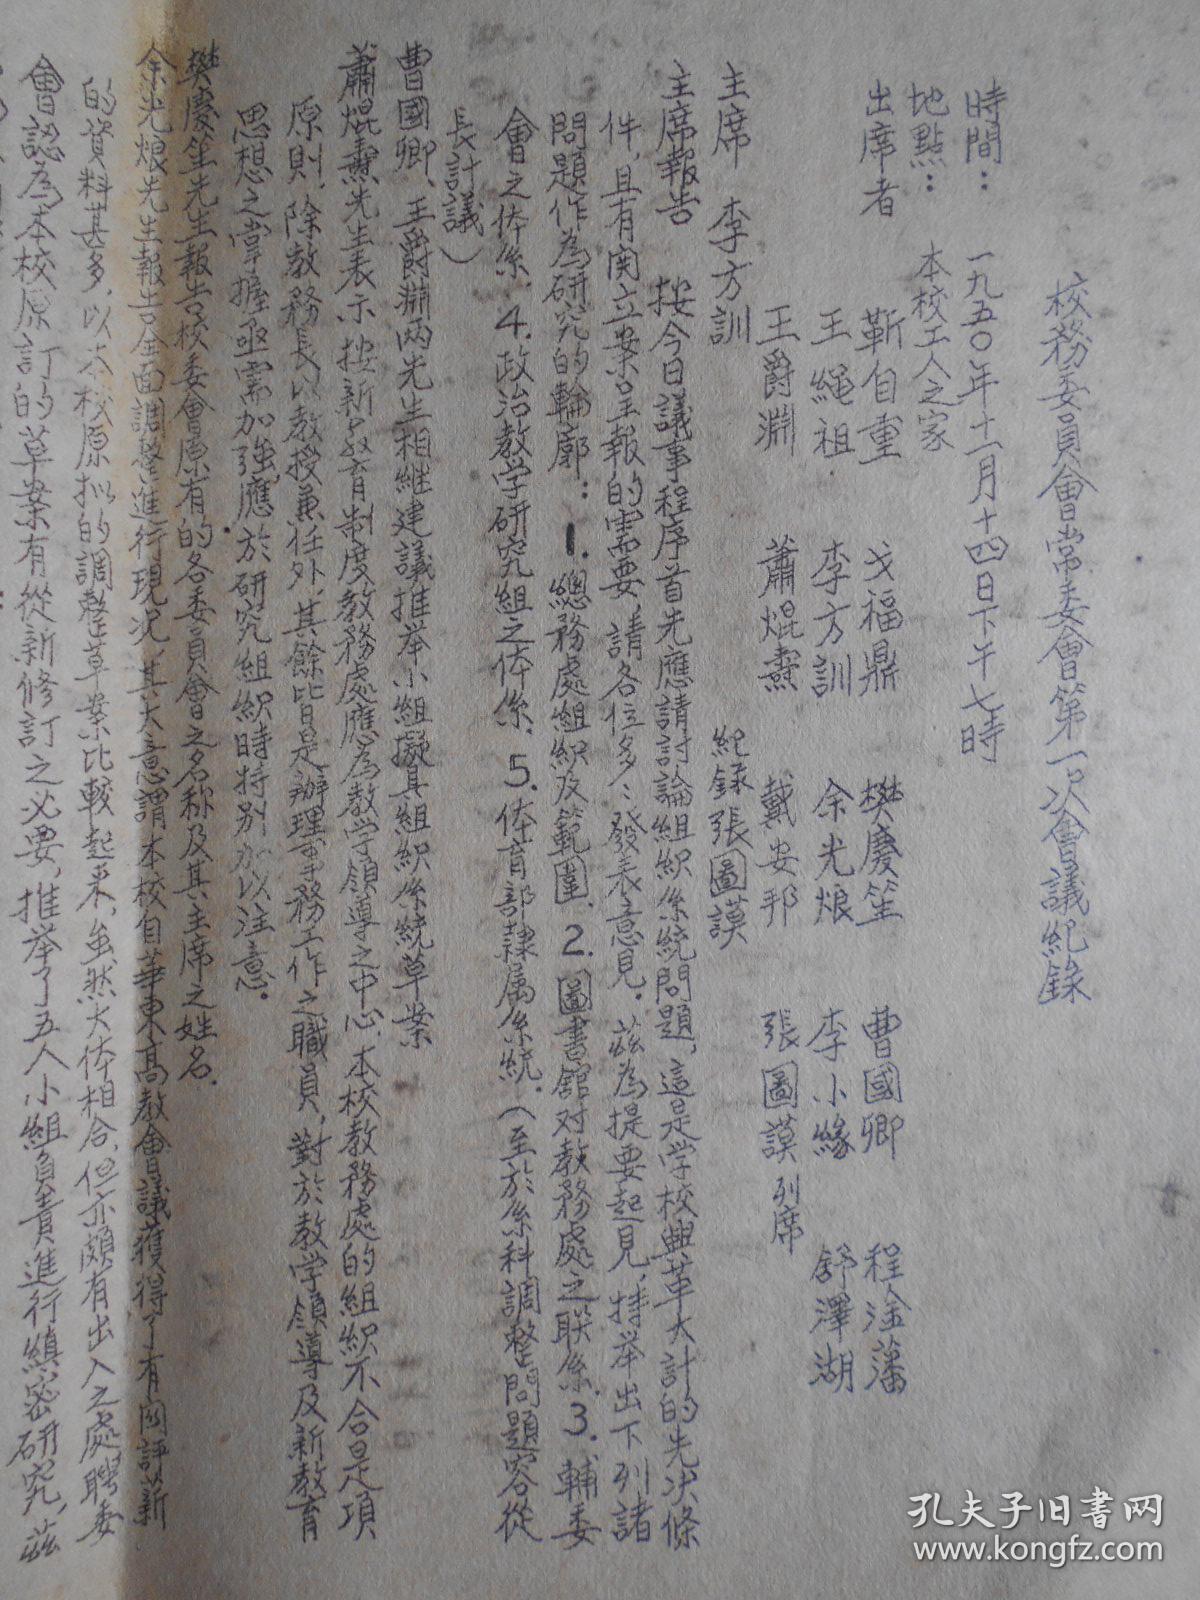 校務委員會常委會第一次會議紀錄
時間：一九五〇年十一月十四日下午七時
地點：本校工人之家
出席者 靳自重 戈福鼎 樊慶笙 曹國卿 程淦藩
王繩祖 李方訓 余光烺 李小緣 舒澤湖
王爵淵 蕭焜燾 戴安邦 張圖謨列席
主席 李方訓 紀錄張圖謨
主席報告 按今日議事程序首先應請討論組織系統問題，這是学校興革大計的先決條
件，且有関立案呈報的需要，請各位多々發表意見。茲為提要起見，特举出下列諸
問題作為研究的輪廓：1.總務處組織及範圍．2.圖書舘对教務處之联系．3.輔委
會之体系．4.政治教学研究組之体系．5.体育部隷属系統．（至於系科調整問題容從
長計議）
曹國卿、王爵淵两先生相継建議推举小組擬具組织系統草案
蕭焜燾先生表示按新教育制度教務處應為教学領導之中心，本校教務處的組织不合是項
原則，除教務長以教授兼任外，其餘皆是辦理事務工作之職員，對於教学領導及新教育
思想之掌握亟需加強，應於研究組织時特别加以注意。
樊慶笙先生報告校委會原有的各委員會之名称及其主席之姓名．
余光烺先生報告全面調整進行現况，其大意謂本校自華東高教會議獲得了有関評薪
的資料甚多，以本校原拟的調整草案比較起来，虽然大体相合，但亦頗有出入之處聘委
會認為本校原訂的草案有從新修訂之必要，推举了五人小組負責進行縝密研究，茲
孔夫子旧書网
www.kongfz.com